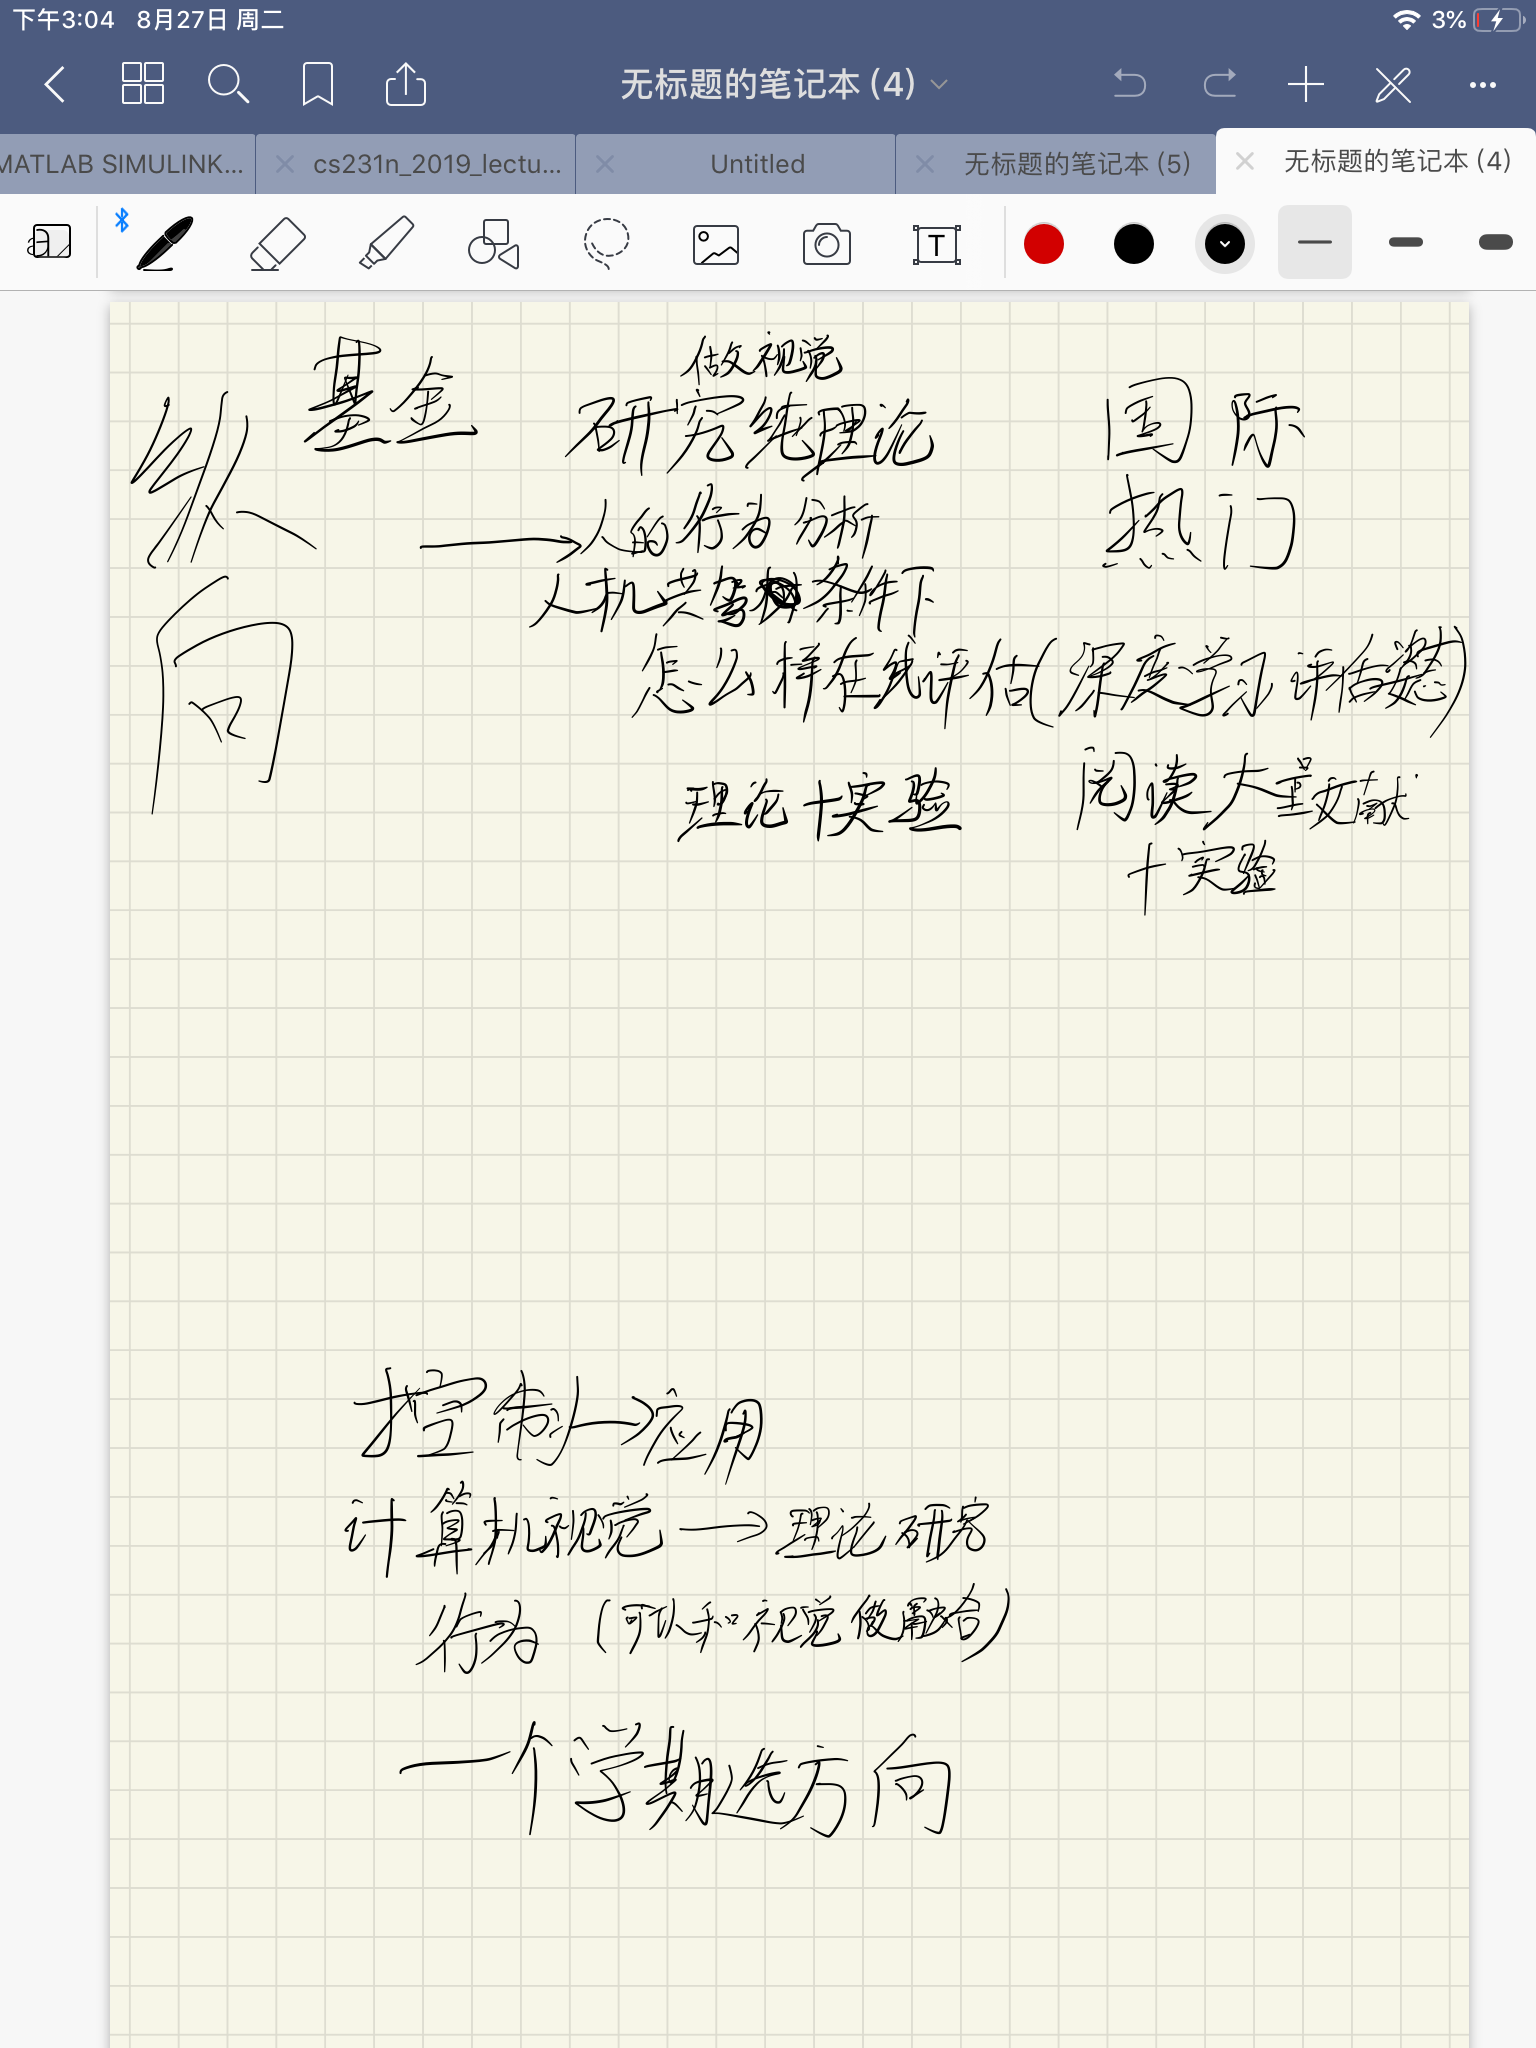 下午3:04 8月27日 周二 3%
无标题的笔记本 (4)
MATLAB SIMULINK... cs231n_2019_lectu... Untitled 无标题的笔记本 (5) 无标题的笔记本 (4)
T
做视觉
纵向 基金 研究纯理论 国际
→人的行为分析 热门
人机共驾 条件下
怎么样在线评估(深度学习评估姿态)
理论+实验 阅读大量文献
+实验
控制→应用
计算机视觉→理论研究
行为 (可以和视觉做融合)
一个学期选方向